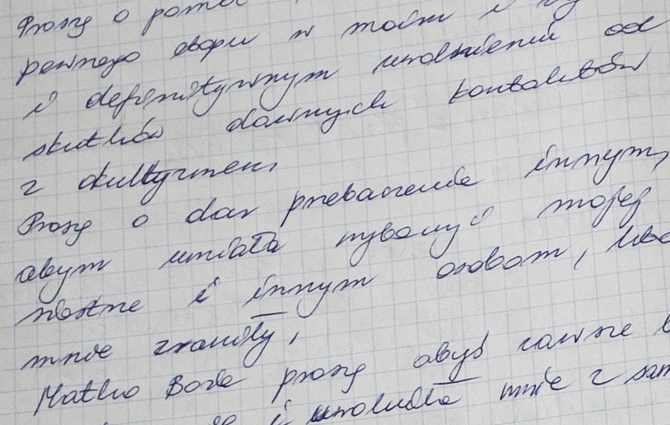 Proszę o pomoc
pewnego etapu w moim i
i definitywnym uwolnieniu od
skutków dawnych kontaktów
z okultyzmem,
Proszę o dar przebaczenia innym,
abym umiała wybaczyć mojej
i innym osobom,
mnie zraniły,
Matko Boża proszę abyś zawsze
i uwolniła mnie z